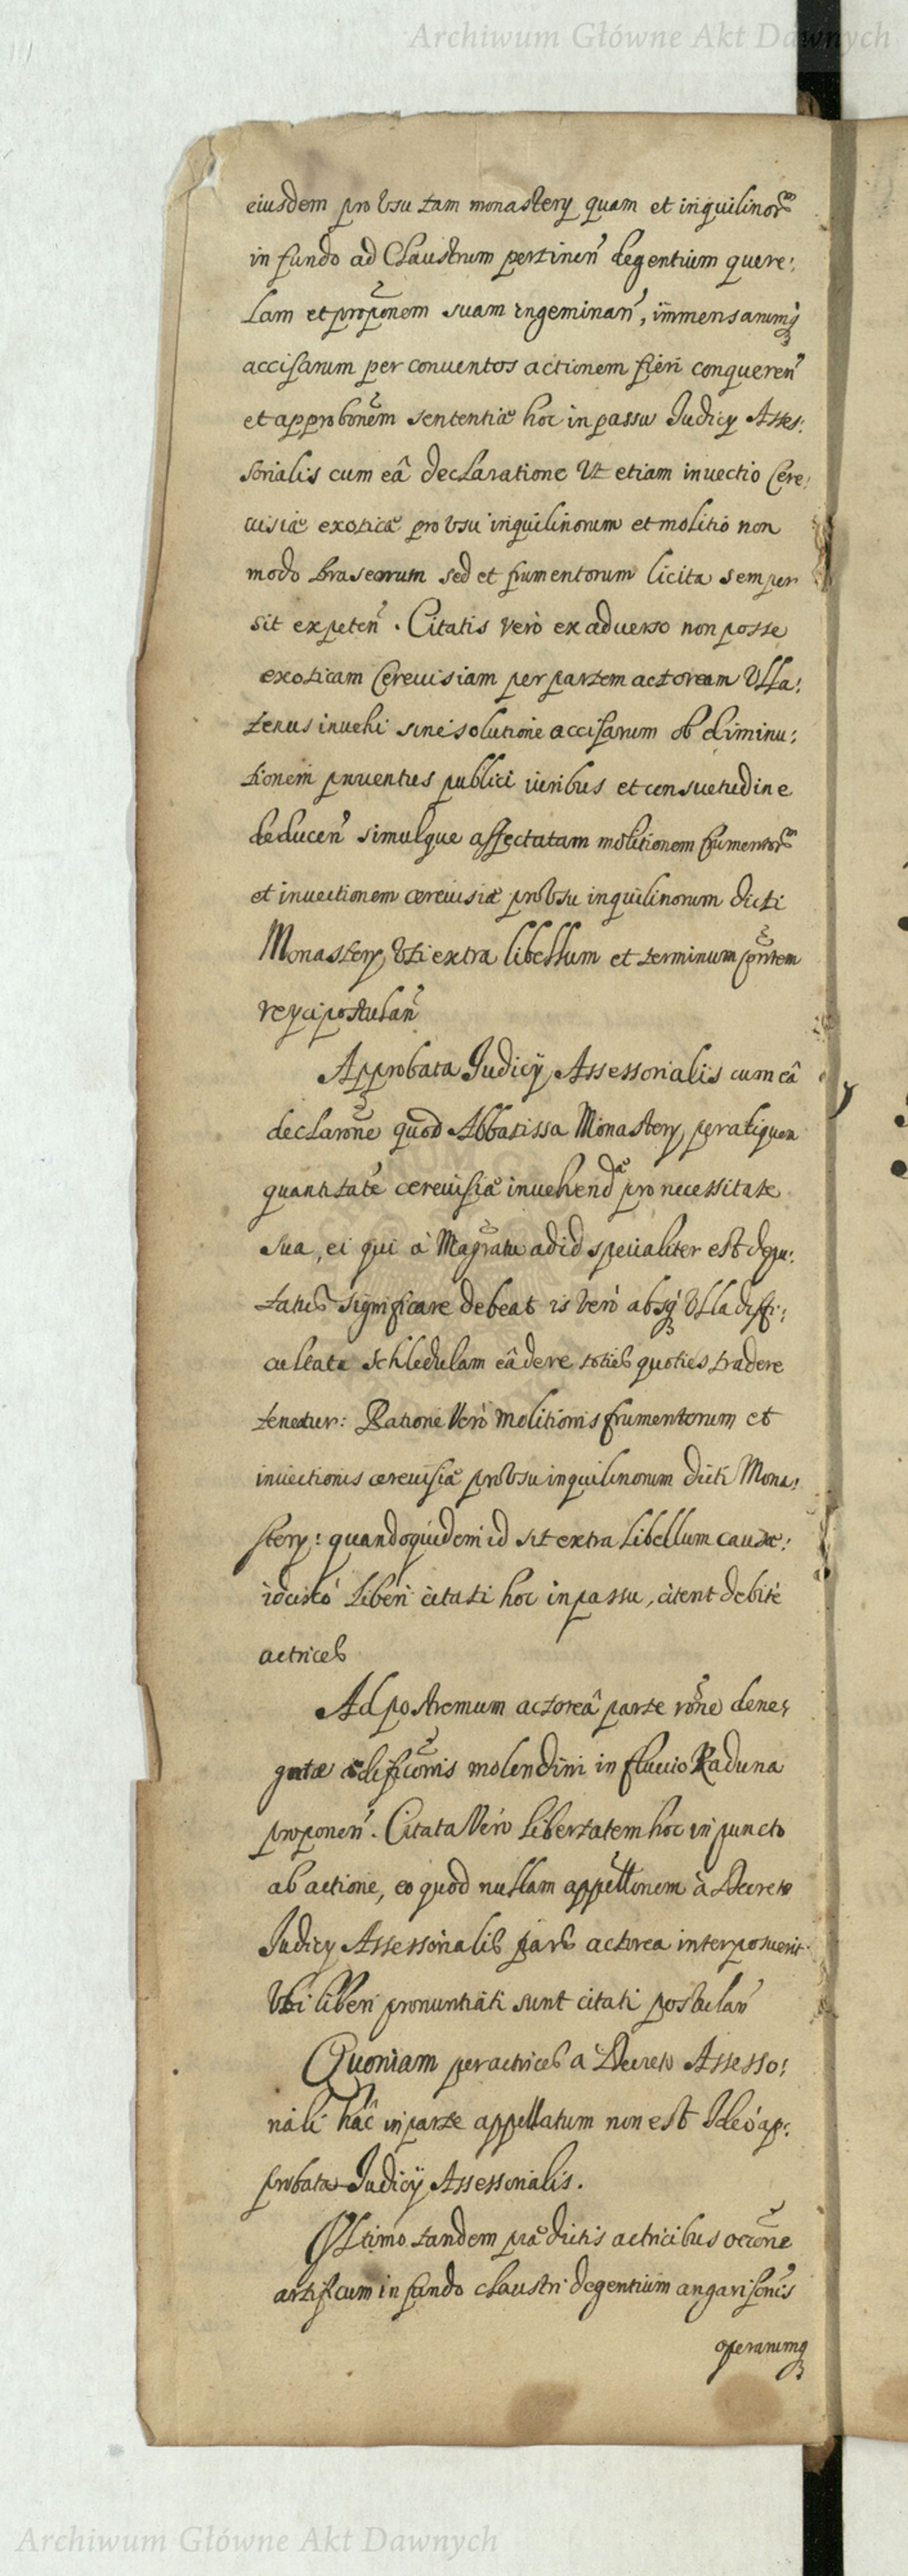 Archiwum Główne Akt Dawnych
eiusdem pro Vsu tam monastery quam et inquilinorm
in fundo ad Claustrum pertinen̄ degentium quere:
lam et propōnem suam ingeminan̄, immensarumq̢
accisarum per conuentos actionem fieri conqueren̄
et approbōnem sententiæ hoc in passu Judicy Asses:
sorialis cum eâ declaratione Ut etiam inuectio Cere:
uisiæ exoticæ pro Vsu inquilinorum et molitio non
modo braseorum sed et frumentorum licita semper
sit expeten̄. Citatis verò ex aduerso non posse
exoticam Cereuisiam per partem actoream Ulla:
tenus inuehi sine solutione accisarum ob diminu:
tionem prouentus publici iuribus et consuetudine
deducen̄ simulque affectatam molitionem frumentorm
et inuectionem cereuisiæ pro Vsu inquilinorum dicti
Monastery, Vti extra libellum et terminum pn̄tem
reyci postulan̄
Approbata Judicÿ Assessorialis cum eâ
declarōne quod Abbatissa Monastery, per aliquam
quantitatē cereuisiæ inuehendæ pro necessitate
sua, ei qui à Magr̄atu ad id specialiter est depu:
tatus significare debeat is verò absq̢ Ulla diffi:
cultate Schledulam eâ de re toties quoties tradere
tenetur: Ratione Verò molitionis frumentorum et
inuectionis cereuisiæ pro Vsu inquilinorum dicti Mona:
stery: quandoquidem id sit extra Libellum causæ:
idcircò Liberi citati hoc in passu, citent debitè
actrices
Ad postremum actoreâ parte rōne dene:
gatæ ædificōnis molendini in fluuio Raduna
proponen̄. Citata Verò libertatem hoc in puncto
ab actione, eo quod nullam appellōnem à Decreto
Judicy Assessorialis pars actorea interposuerit
Vti liberi pronuntiati sunt citati postulan̄
Quoniam per actrices a Decreto Assesso:
riali hâc in parte appellatum non est Ideò ap:
probata Judicÿ Assessorialis.
Ultimo tandem prædictis actricibus occōne
artificum in fundo claustri degentium angarisōnis
operarumq̢
Archiwum Główne Akt Dawnych